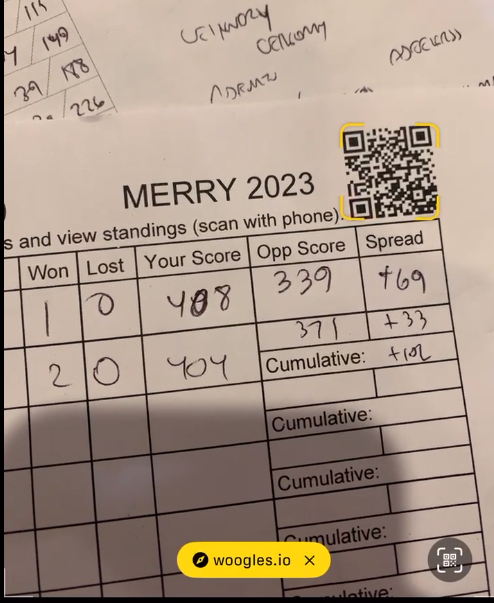 115
149
39 188
226
CEREMONY
MERRY 2023
s and view standings (scan with phone).
Won Lost Your Score Opp Score Spread
1 0 408 339 +69
371 +33
2 0 404 Cumulative: +102
Cumulative:
Cumulative:
Cumulative:
Cumulative:
woogles.io ×